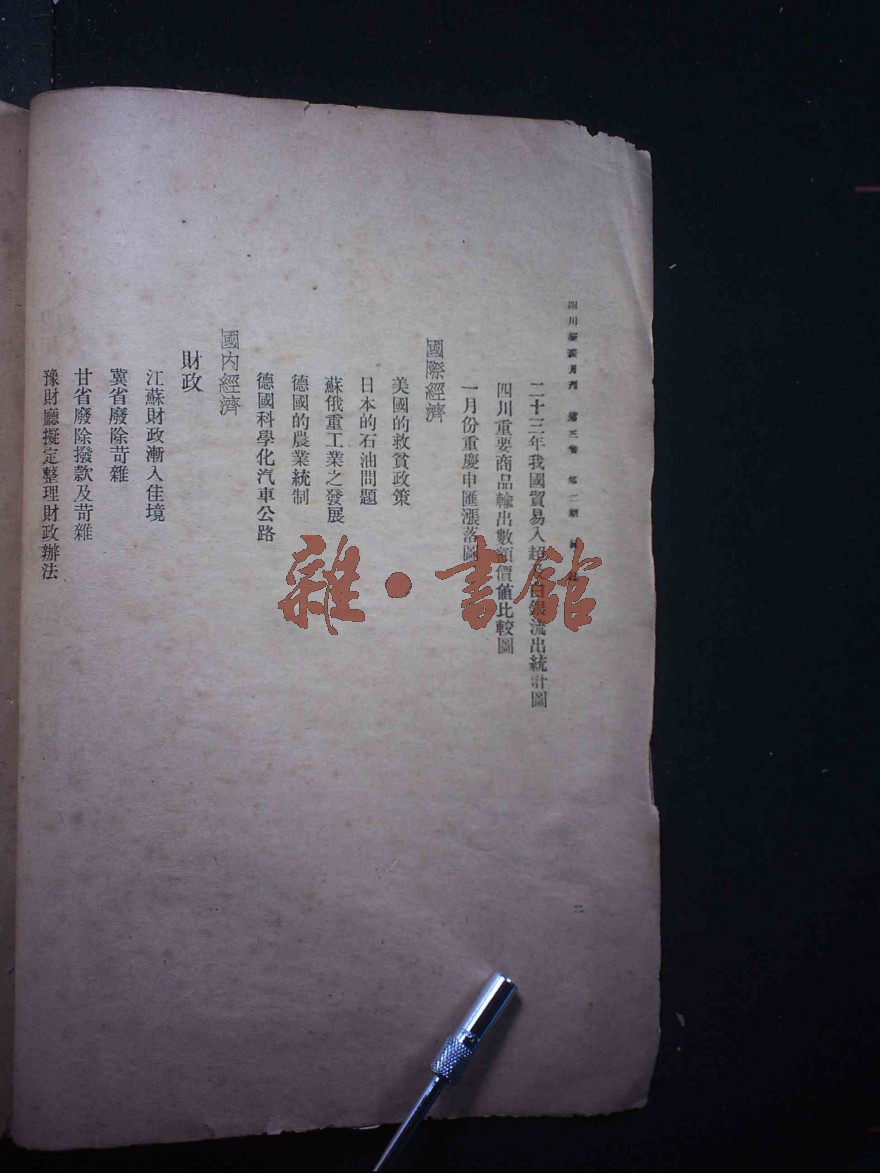 四川經濟月刊 第三卷 第二期
二十三年我國貿易入超及白銀流出統計圖
四川重要商品輸出數額價值比較圖
一月份重慶申匯漲落圖
國際經濟
美國的救貧政策
日本的石油問題
蘇俄重工業之發展
德國的農業統制
德國科學化汽車公路
國內經濟
財政
江蘇財政漸入佳境
冀省廢除苛雜
甘省廢除撥款及苛雜
豫財廳擬定整理財政辦法
二
雜·書館